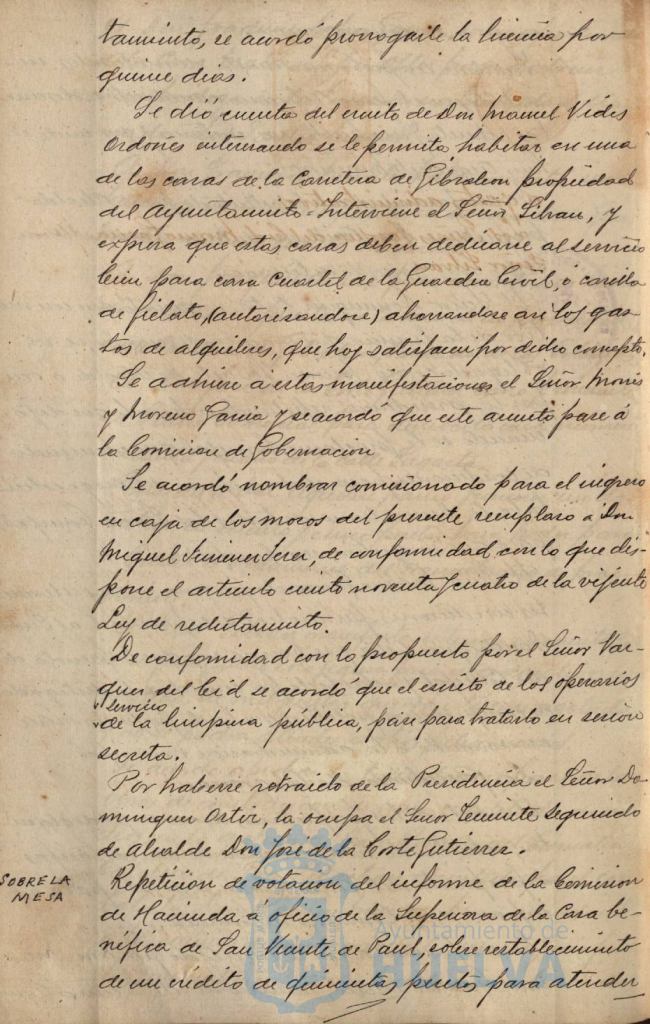 tamiento, se acordó prorrogarle la licencia por
quince dias.
Se dió cuenta del escrito de Don Manuel Vides
Ordoñes interesando se le permita habitar en una
de las casas de la Carretera de Gibraleon propiedad
del Ayuntamiento. Interviene el Señor Silvan, y
expresa que estas casas deben dedicarse al servicio
bien para casa Cuartel de la Guardia Civil, ó casilla
de fielato, (autorisandose) ahorrandose asi los gas-
tos de alquileres, que hoy satisfacen por dicho concepto.
Se adhiere á estas manifestaciones el Señor Monis
y Moreno Garcia y se acordó que este asunto pase á
la Comision de Gobernacion
Se acordó nombrar comisionado para el ingreso
en caja de los mozos del presente remplazo a Don
Miguel Jimenez Jerez, de conformidad con lo que dis-
pone el articulo ciento noventa y cuatro de la vigente
Ley de reclutamiento.
De conformidad con lo propuesto por el Señor Vaz-
quez del Cid se acordó que el escrito de los operarios
servicio
de la limpieza pública, pase para tratarlo en sesion
secreta.
Por haberse retraido de la Presidencia el Señor Do-
minguez Ortiz, la ocupa el Señor Teniente segundo
de alcalde Don José de la Corte Gutierrez.
SOBRE LA
MESA
Repetición de votacion del informe de la Comision
de Hacienda a oficio de la Superiora de la Casa be-
néfica de San Vicente de Paul, sobre restablecimiento
de un crédito de quinientas pesetas para atender
Ayuntamiento de
HUELVA